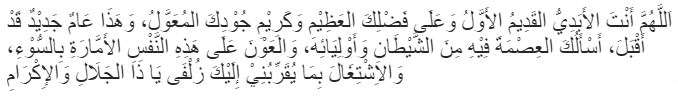 اَللّٰهُمَّ أَنْتَ الأَبَدِيُّ القَدِيمُ الأَوَّلُ وَعَلَى فَضْلِكَ العَظِيْمِ وَكَرِيْمِ جُوْدِكَ المُعَوَّلُ، وَهَذَا عَامٌ جَدِيْدٌ قَدْ
أَقْبَلَ، أَسْأَلُكَ العِصْمَةَ فِيْهِ مِنَ الشَّيْطَانِ وَأَوْلِيَائِهِ، وَالعَوْنَ عَلَى هَذِهِ النَّفْسِ الأَمَّارَةِ بِالسُّوْءِ،
وَالاِشْتِغَالَ بِمَا يُقَرِّبُنِيْ إِلَيْكَ زُلْفَى يَا ذَا الجَلَالِ وَالإِكْرَامِ